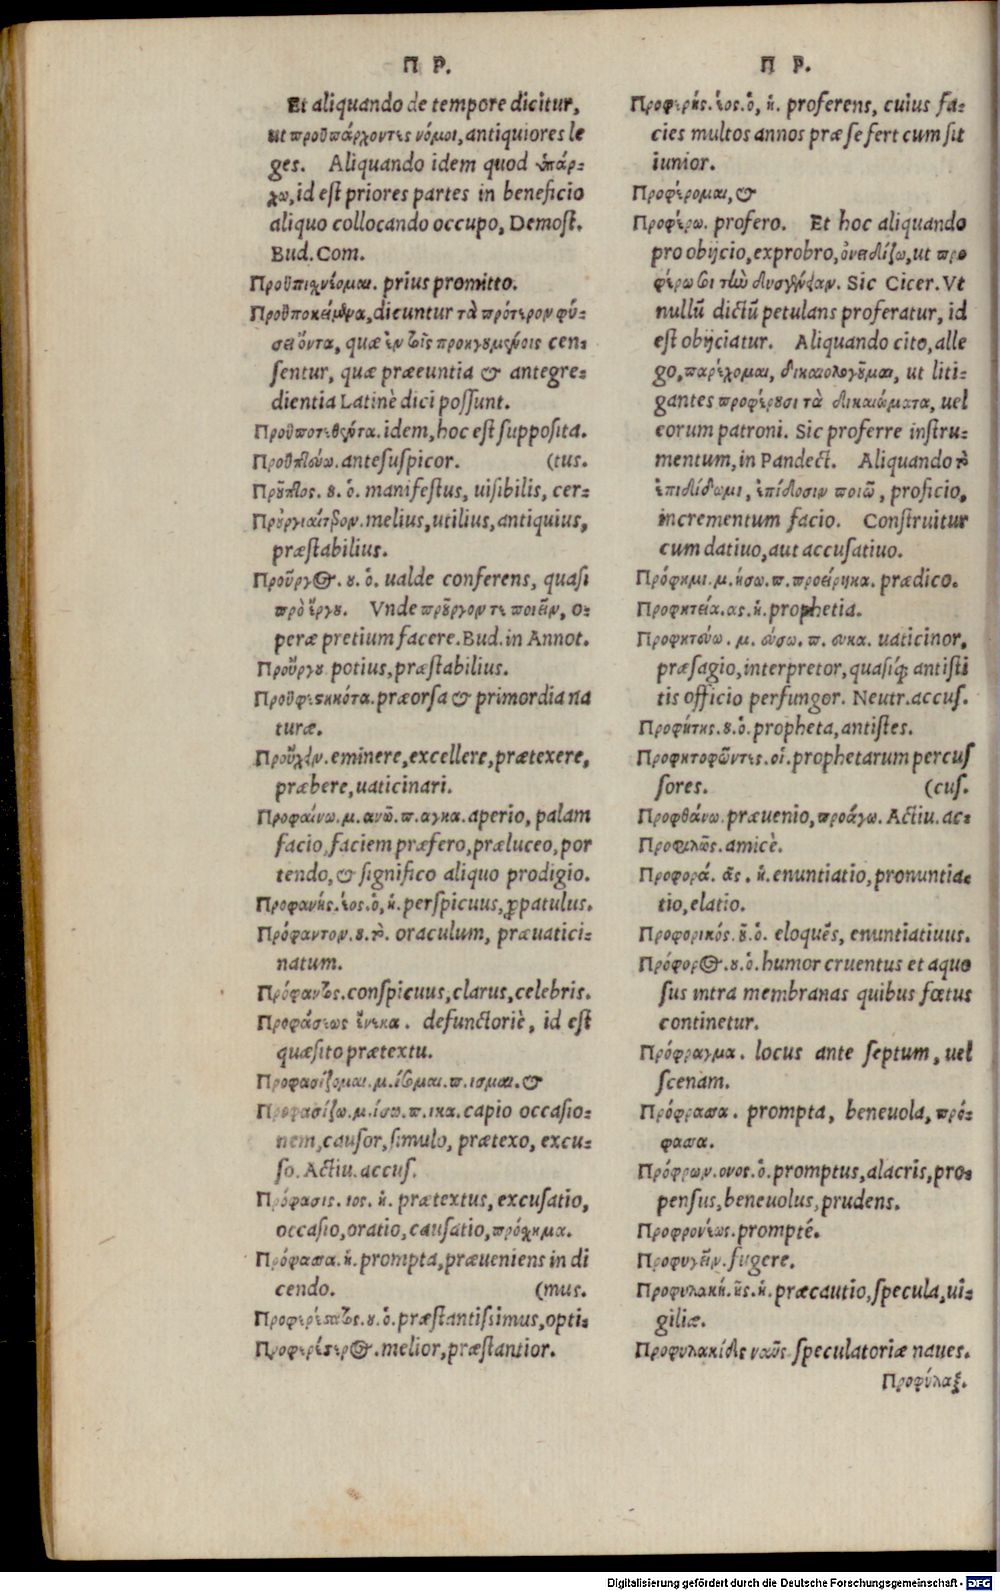 Π Ρ.
Et aliquando de tempore dicitur,
ut προϋπάρχοντες νόμοι, antiquiores le
ges. Aliquando idem quod ὑπάρ-
χω, id est priores partes in beneficio
aliquo collocando occupo, Demost.
Bud. Com.
Προϋπιχνέομαι. prius promitto.
Προϋποκείμενα, dicuntur τὰ πρότερον φύ-
σει ὄντα, quæ ἐν τοῖς προηγουμένοις cen-
sentur, quæ præeuntia & antegre-
dientia Latinè dici possunt.
Προϋποτεθέντα. idem, hoc est supposita.
Προϋπτεύω. antesuspicor. (tus.
Προὖπτος. ου. ὁ. manifestus, uisibilis, cer-
Προυργιαίτερον. melius, utilius, antiquius,
præstabilius.
Προὖργος. ου. ὁ. ualde conferens, quasi
πρὸ ἔργου. Vnde προὖργον τι ποιεῖν, o-
peræ pretium facere. Bud. in Annot.
Προὔργου potius, præstabilius.
Προϋφεστηκότα. præorsa & primordia na
turæ.
Προὔχειν. eminere, excellere, prætexere,
præbere, uaticinari.
Προφαίνω. μ. ανῶ. π. αγκα. aperio, palam
facio, faciem præfero, præluceo, por
tendo, & significo aliquo prodigio.
Προφανής. έος. ὁ, ἡ. perspicuus, ꝓpatulus.
Πρόφαντον. ου. τὸ. oraculum, præuatici-
natum.
Πρόφαντος. conspicuus, clarus, celebris.
Προφάσεως ἕνεκα. defunctoriè, id est
quæsito prætextu.
Προφασίζομαι. μ. ίσομαι. π. ισμαι. &
Προφασίζω. μ. ίσω. π. ικα. capio occasio-
nem, causor, simulo, prætexo, excu-
so. Actiu. accus.
Πρόφασις. ιος. ἡ. prætextus, excusatio,
occasio, oratio, causatio, πρόσχημα.
Πρόφασσα. ἡ. prompta, præueniens in di
cendo. (mus.
Προφερέστατος. ου. ὁ. præstantissimus, opti-
Προφερέστερος. melior, præstantior.
Π Ρ.
Προφερής. έος. ὁ, ἡ. proferens, cuius fa-
cies multos annos præ se fert cum sit
iunior.
Προφέρομαι, &
Προφέρω. profero. Et hoc aliquando
pro obijcio, exprobro, ὀνειδίζω, ut προ
φέρω σοι τὴν δυσγένειαν. Sic Cicer. Vt
nullũ dictũ petulans proferatur, id
est obijciatur. Aliquando cito, alle
go, παρέχομαι, δικαιολογοῦμαι, ut liti-
gantes προφέρουσι τὰ δικαιώματα, uel
eorum patroni. Sic proferre instru-
mentum, in Pandect. Aliquando τὸ
ἐπιδίδωμι, ἐπίδοσιν ποιῶ, proficio,
incrementum facio. Construitur
cum datiuo, aut accusatiuo.
Πρόφημι. μ. ήσω. π. προείρηκα. prædico.
Προφητεία. ας. ἡ. prophetia.
Προφητεύω. μ. εύσω. π. ευκα. uaticinor,
præsagio, interpretor, quasiq; antisti
tis officio perfungor. Neutr. accus.
Προφήτης. ου. ὁ. propheta, antistes.
Προφητοφῶντες. οἱ. prophetarum percus
sores. (cus.
Προφθάνω. præuenio, προάγω. Actiu. ac-
Προφιλῶς. amicè.
Προφορά. ᾶς. ἡ. enuntiatio, pronuntia-
tio, elatio.
Προφορικός. οῦ. ὁ. eloquẽs, enuntiatiuus.
Πρόφορος. ου. ὁ. humor cruentus et aquo
sus intra membranas quibus fœtus
continetur.
Πρόφραγμα. locus ante septum, uel
scenam.
Πρόφρασσα. prompta, beneuola, πρό-
φασσα.
Πρόφρων. ονος. ὁ. promptus, alacris, pro-
pensus, beneuolus, prudens.
Προφρονέως. promptè.
Προφυγεῖν. fugere.
Προφυλακή. ῆς. ἡ. præcautio, specula, ui-
giliæ.
Προφυλακίδες ναῦς speculatoriæ naues.
Προφύλαξ.
Digitalisierung gefördert durch die Deutsche Forschungsgemeinschaft - DFG